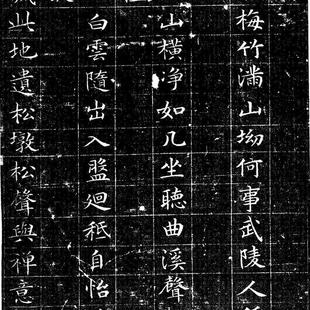 梅竹滿山坳何事武陵人
山橫淨如几坐聽曲溪聲
白雲隨出入盤迴秖自怡
此地遺松墩松聲與禪意